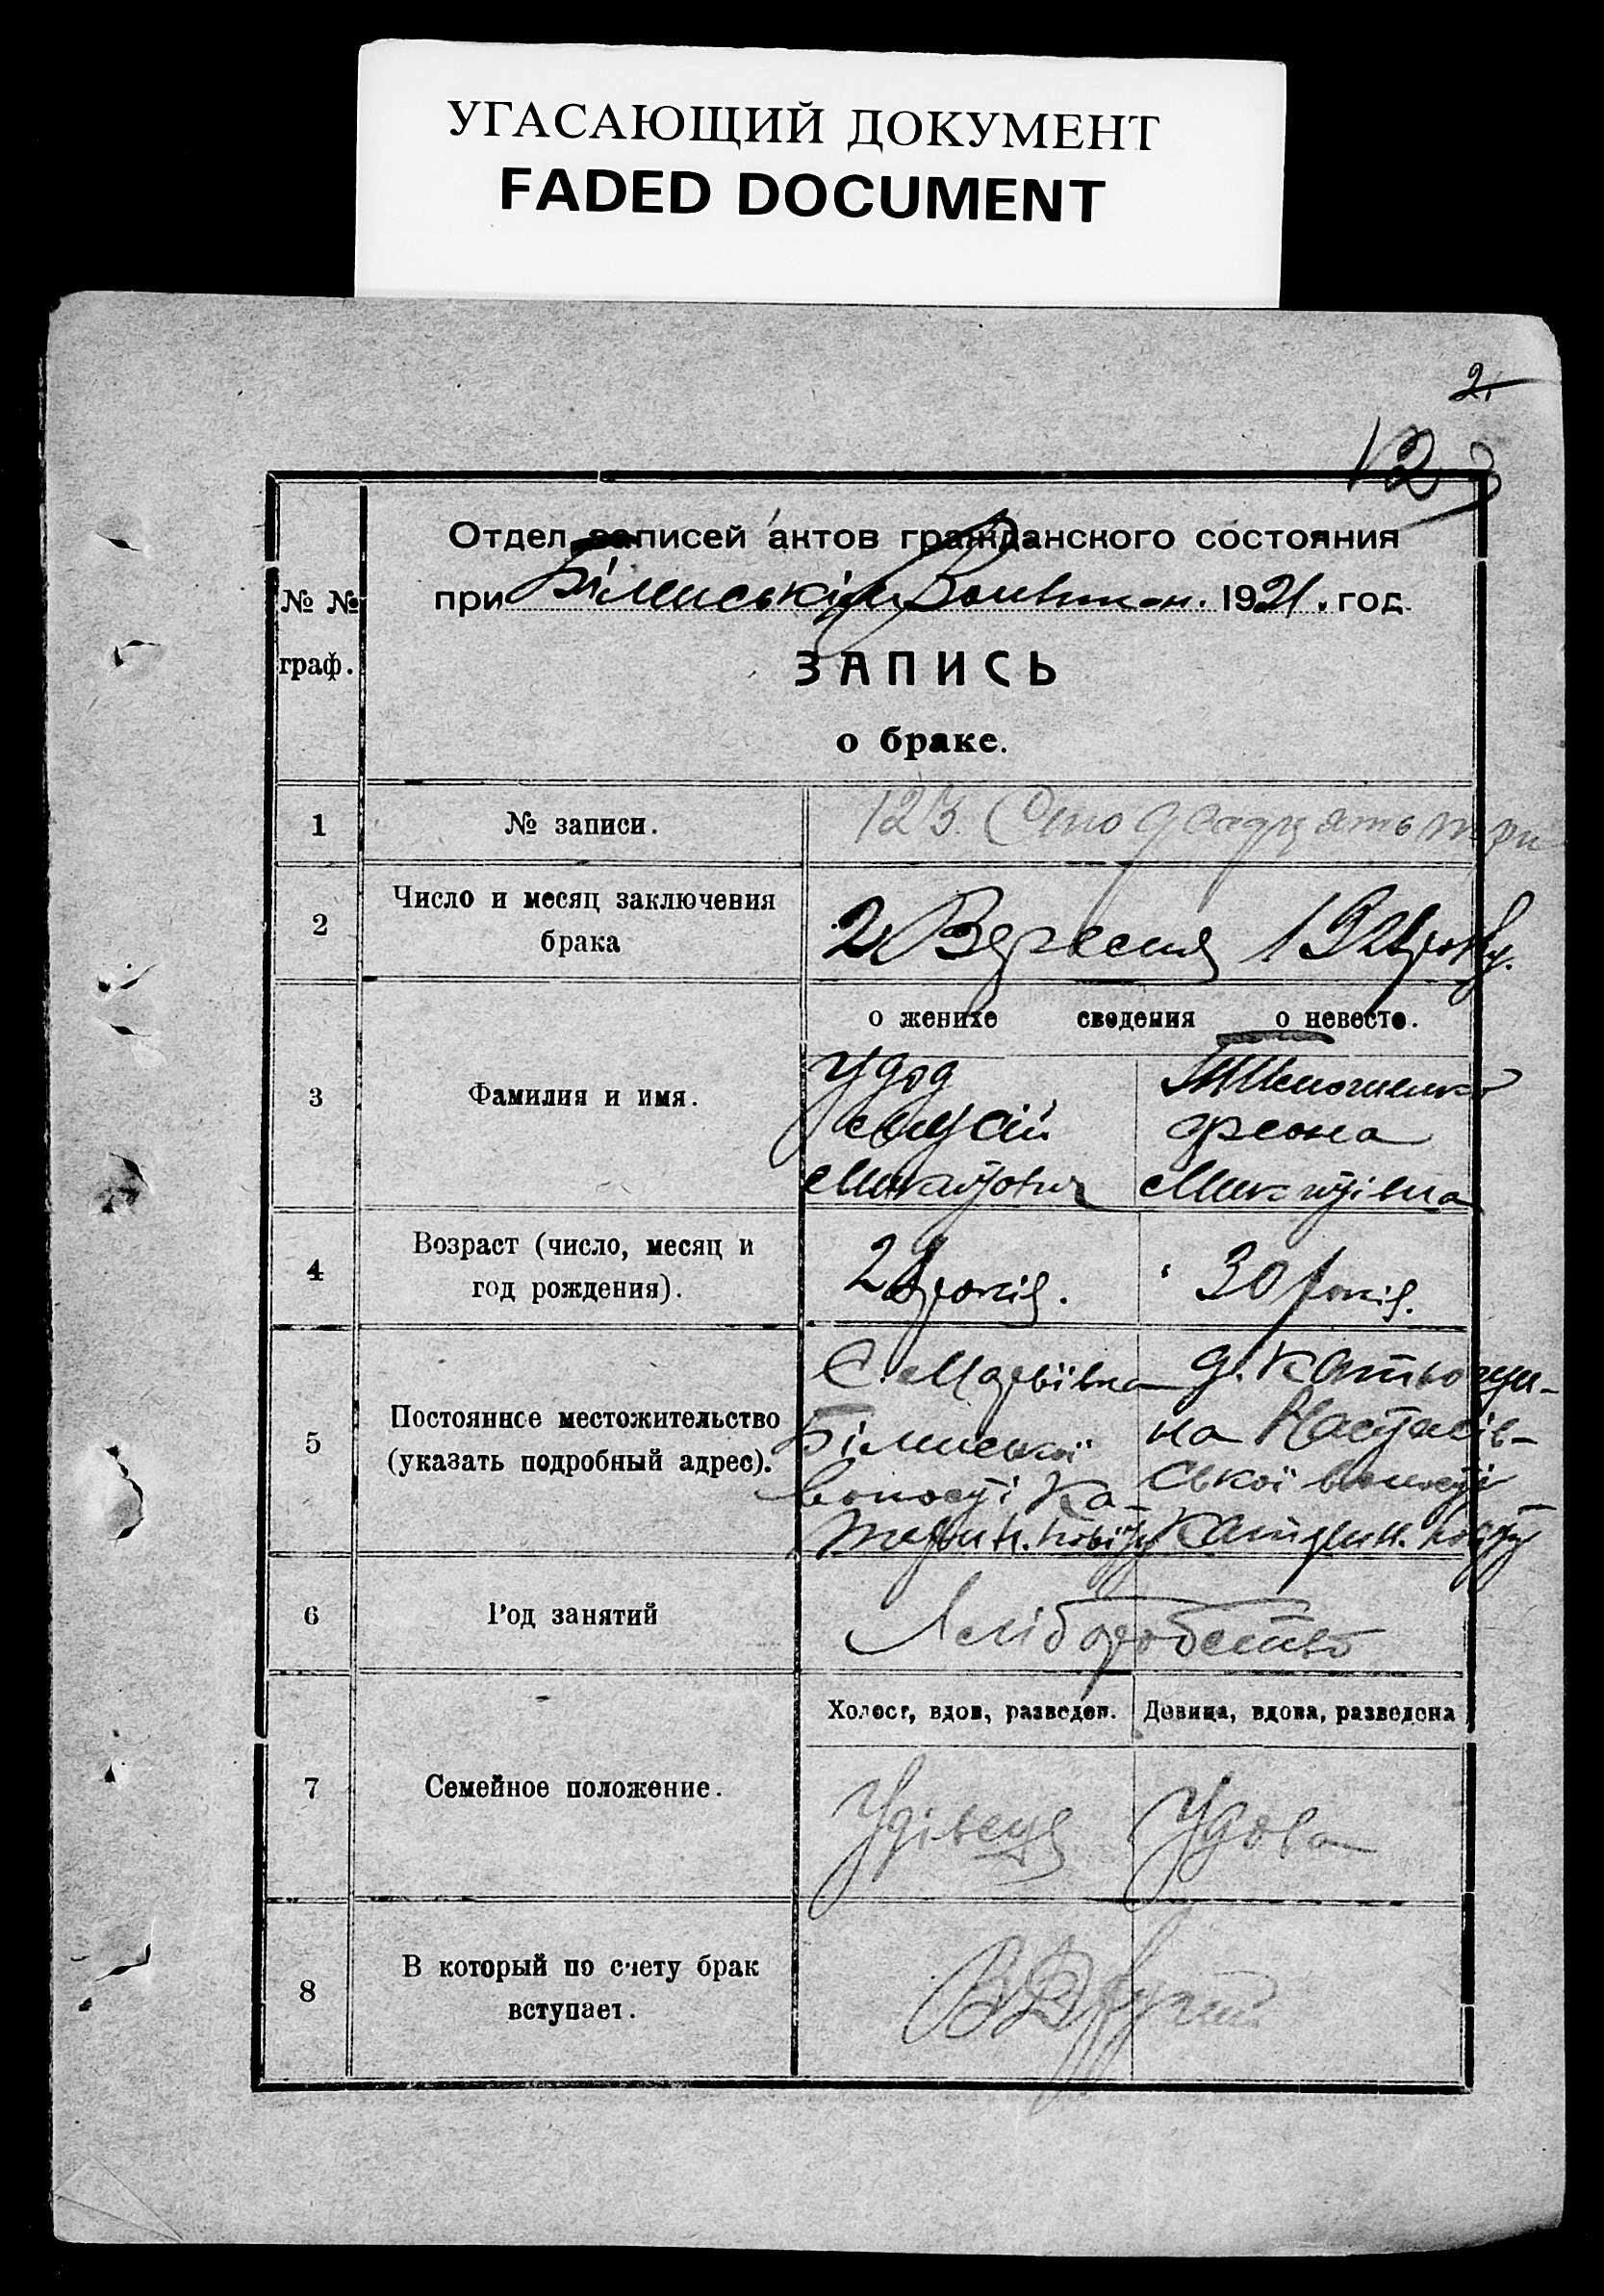 УГАСАЮЩИЙ ДОКУМЕНТ
FADED DOCUMENT
2.
123
№ №
граф.
Отдел записей актов гражданского состояния
при Більмські Волвикон. 1921. год.
ЗАПИСЬ
о браке.
1
№ записи.
123. Сто двадцять три
2
Число и месяц заключения
брака
2 Вересня 1921 року.
о женихе сведения о невесте.
3
Фамилия и имя.
Удод
Мусій
Микитович
Тимошенко
Фсона
Микитівна
4
Возраст (число, месяц и
год рождения).
28 років.
30 років.
5
Постоянное местожительство
(указать подробный адрес).
С. Мар'ївка
волості Ка-
терин. повіту
на Настасів-
ської волості
Катерин. повіту
6
Род занятий
Хліборобство
7
Семейное положение.
Холост, вдов, разведен.
Девица, вдова, разведена
Удівець
Удова
8
В который по счету брак
вступает.
В Другий